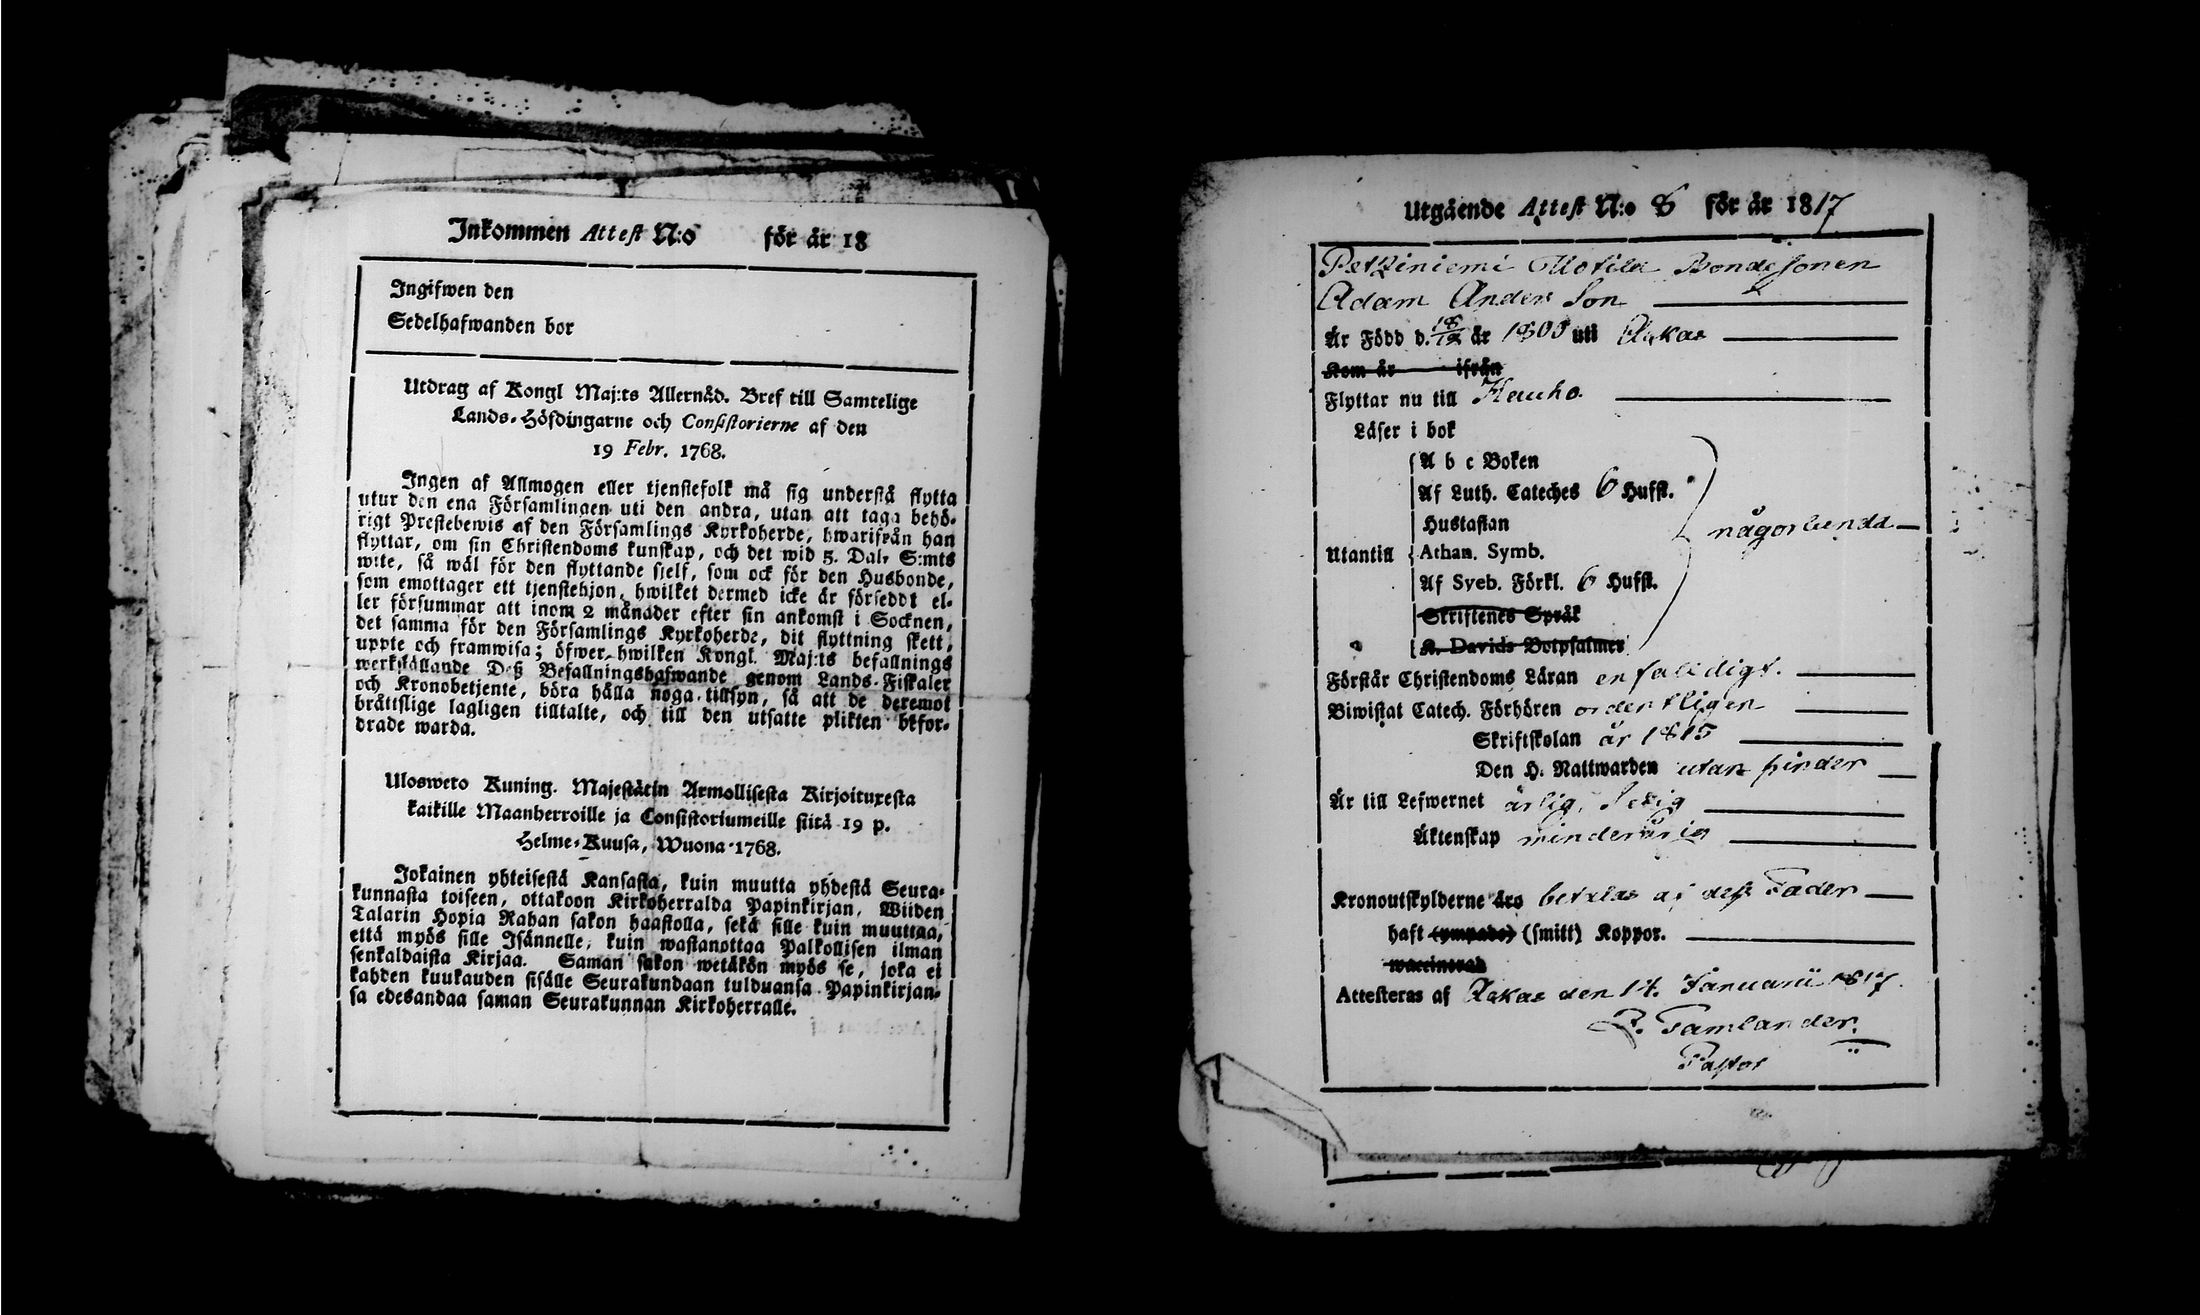 Inkommen Attest N:o för år 18
Ingifwen den
Sedelhafwanden bor
Utdrag af Kongl Maj:ts Allernåd. Bref till Samtelige
Lands-Höfdingarne och Consistorierne af den
19 Febr. 1768.
Ingen af Allmogen eller tjenstefolk må sig understå flytta
utur den ena Församlingen uti den andra, utan att taga behö-
rigt Prestebewis af den Församlings Kyrkoherde, hwarifrån han
flyttar, om sin Christendoms kunskap, och det wid 5. Dal. S:mts
wite, så wäl för den flyttande sjelf, som ock för den Husbonde,
som emottager ett tjenstehjon, hwilket dermed icke är förseddt el-
ler försummar att inom 2 månader efter sin ankomst i Socknen,
det samma för den Församlings Kyrkoherde, dit flyttning skett,
uppte och framwisa; öfwer hwilken Kongl. Maj:ts befallnings
werkställande Deß Befallningshafwande genom Lands-Fiskaler
och Kronobetjente, böra hålla noga tillsyn, så att de deremot
bråttslige lagligen tilltalte, och till den utsatte plikten befor-
drade warda.
Uloswето Kuning. Majestätin Armollisesta Kirjoituxesta
kaikille Maanherroille ja Consistoriumeille siitä 19 p.
Helme-Kuusa, Wuona 1768.
Jokainen yhteisestä Kansasta, kuin muutta yhdestä Seura-
kunnasta toiseen, ottakoon Kirkoherralda Papinkirjan, Wiiden
Talarin Hopia Rahan sakon haastolla, sekä sille kuin muuttaa,
että myös sille Isännelle, kuin wastanottaa Palkollisen ilman
senkaldaista Kirjaa. Saman sakon wetäkön myös se, joka ei
kahden kuukauden sisälle Seurakundaan tulduansa Papinkirjan-
sa edesandaa saman Seurakunnan Kirkoherralle.
Utgående Attest N:o 8 för år 1817
Petziniemi Uotila Bondesonen
Adam Anders Son
Är Född d. 18/12 år 1800 uti Ackas
Kom år ifrån
Flyttar nu till Hauho
Läser i bok
A b c Boken
Af Luth. Cateches 6 Hufst.
Hustaflan
någorlunda
Utantill Athan. Symb.
Af Sveb. Förkl. 6 Hufst.
Skriftenes Språk
K. Davids Botpsalmer
Förstår Christendoms Läran enfaldigt.
Biwistat Catech. Förhören ordentligen
Skriftskolan år 1815
Den H. Nattwarden utan hinder
Är till Lefwernet ärlig,
Äktenskap minderårig
Kronoutskylderne äro betalas af deß Fader
haft (ympade) (smitt) Koppor.
waccinerad
Attesteras af Ackas den 14. Januarii 1817.
Tamlander.
Pastor